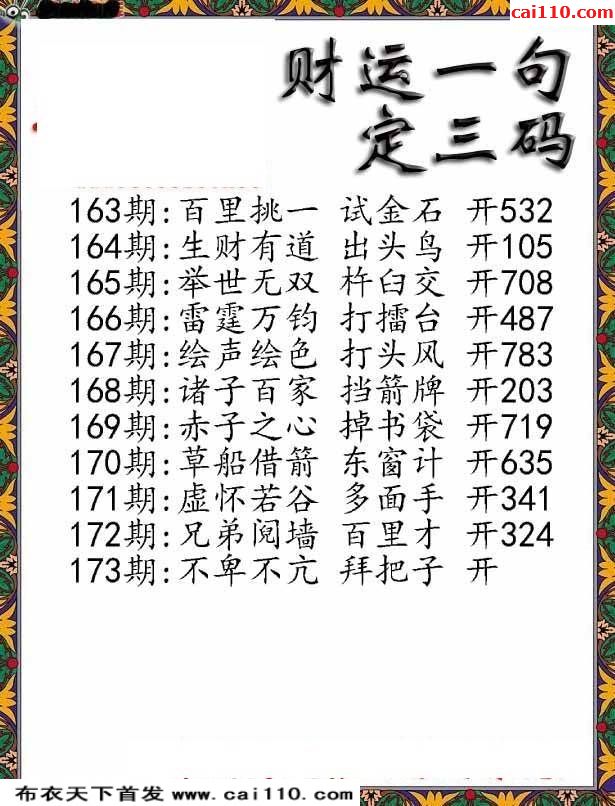 cai110.com
财运一句
定三码
163期:百里挑一 试金石 开532
164期:生财有道 出头鸟 开105
165期:举世无双 杵臼交 开708
166期:雷霆万钧 打擂台 开487
167期:绘声绘色 打头风 开783
168期:诸子百家 挡箭牌 开203
169期:赤子之心 掉书袋 开719
170期:草船借箭 东窗计 开635
171期:虚怀若谷 多面手 开341
172期:兄弟阅墙 百里才 开324
173期:不卑不亢 拜把子 开
布衣天下首发 www.cai110.com